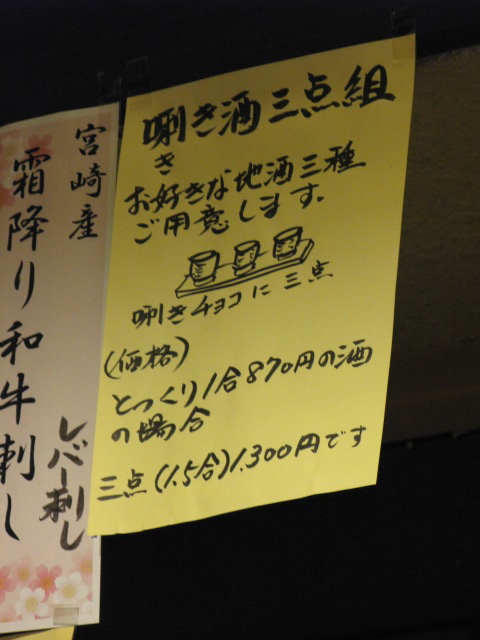 唎き酒三点組
き
お好きな地酒三種
ご用意します。
唎きチョコに三点
(価格)
とっくり1合870円の酒
の場合
三点(1.5合)1.300円です
宮崎産
霜降り和牛刺し
レバー刺し